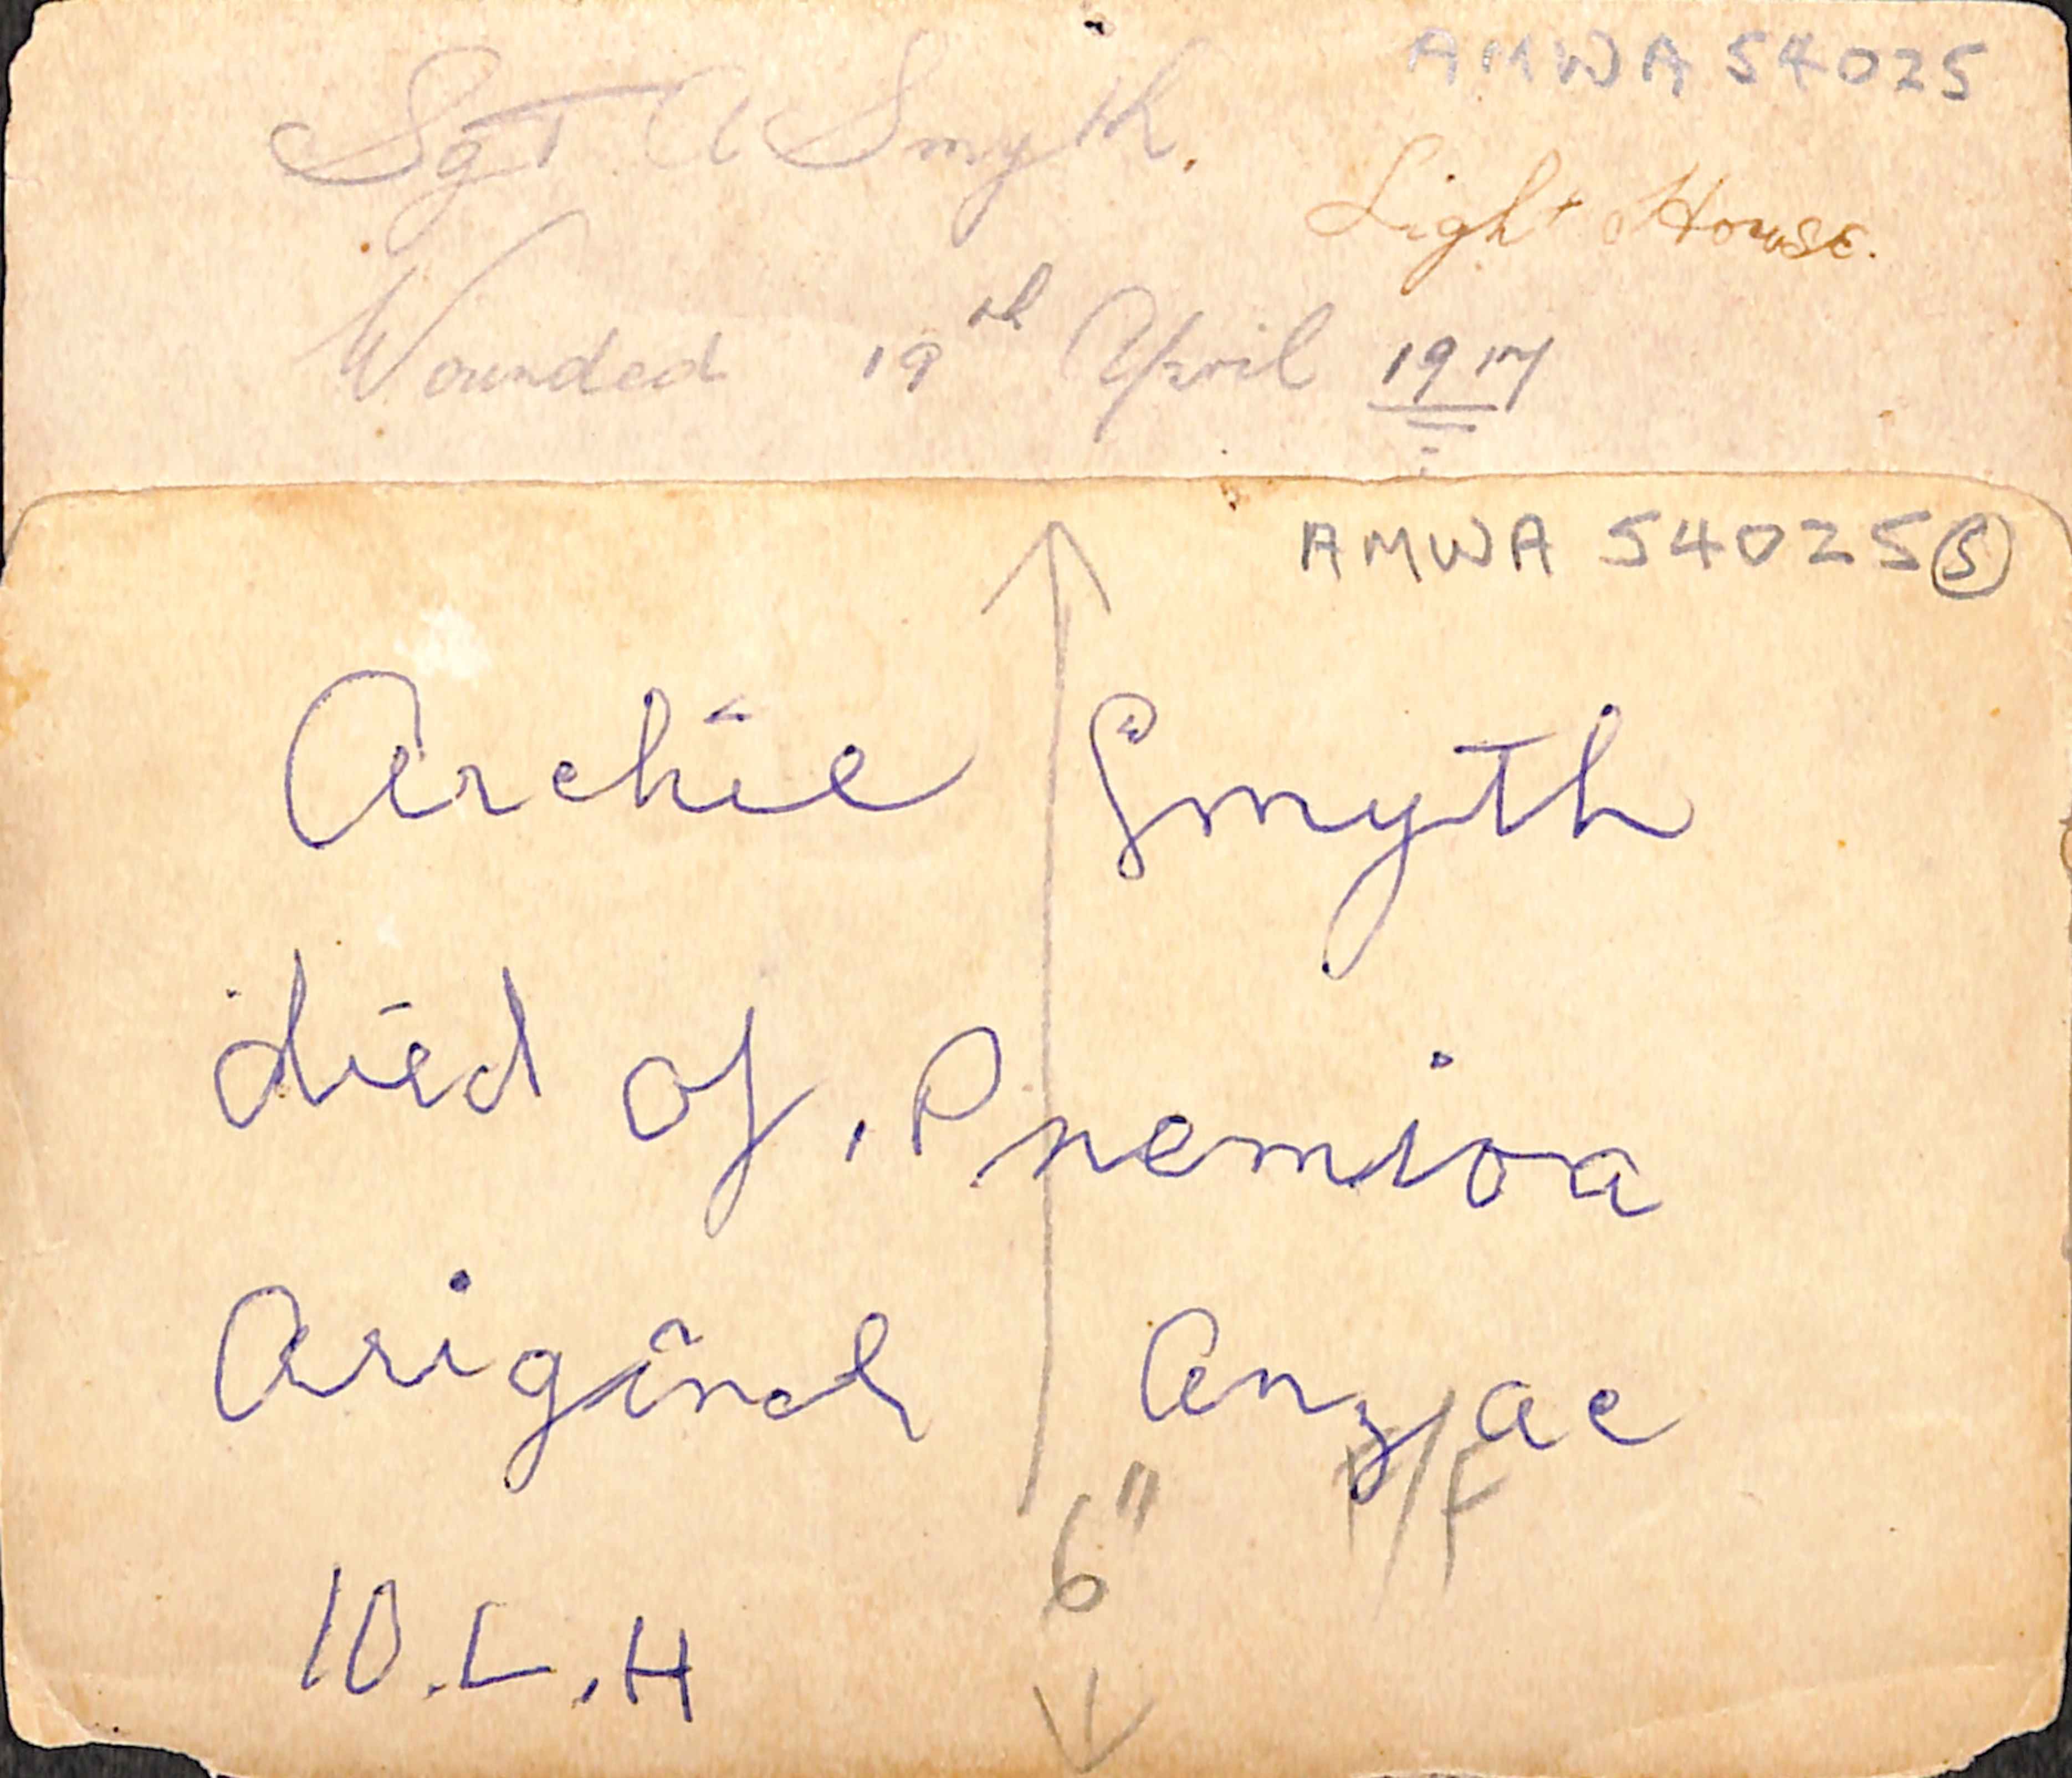 AMWA 54025
Sgt A Smyth.
Light House.
Wounded 19th April 1917
AMWA 54025 S
Archie Smyth
died of, Pnemioa
Original Anzac
10.L.H
6" F/F